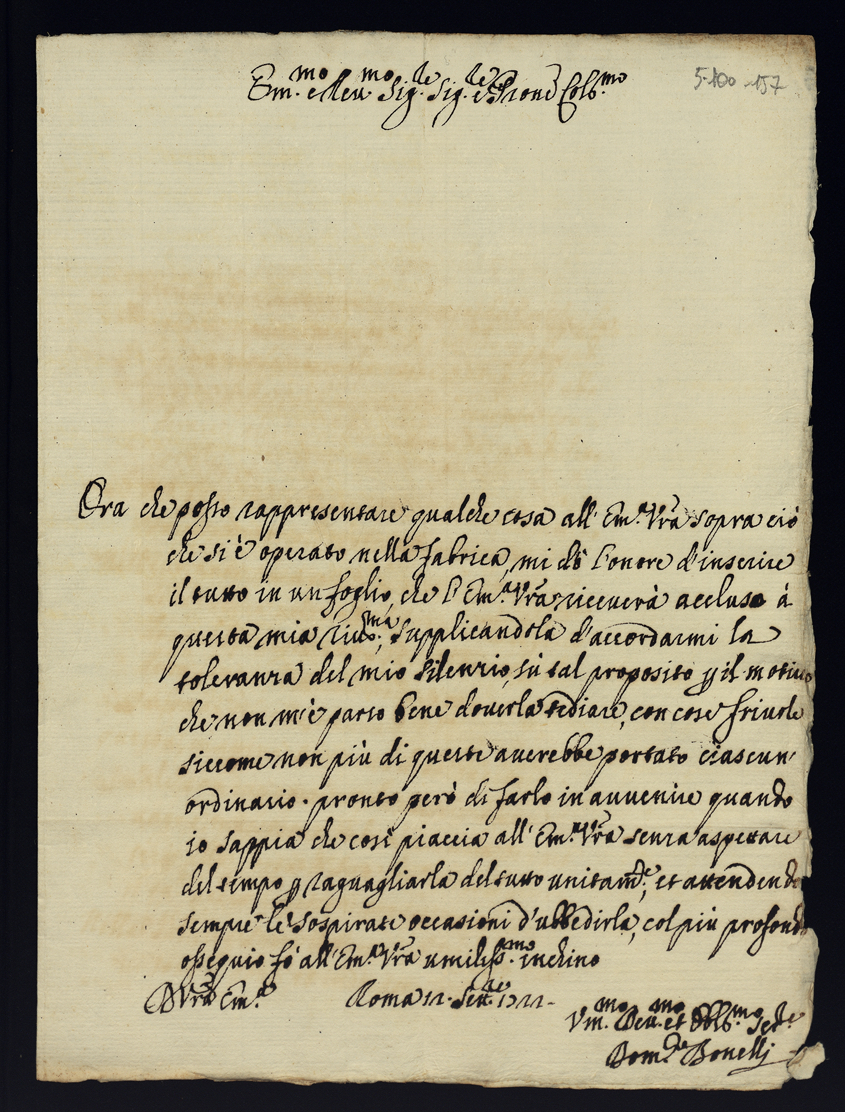 Em.mo e Reu.mo Sig.re Sig.re e Prone Colt.mo
5-100-157
Ora che posso rappresentare qualche cosa all' Em.a Vra sopra ciò
che si è operato nella fabrica, mi dò l'onore d'inserire
il tutto in un foglio, che l'Em.a Vra riceuerà accluso à
questa mia riu.ma, supplicandola d'accordarmi la
toleranza del mio silenzio, sù tal proposito p il motiuo
che non m'è parso bene douerla tediare, con cose friuole
siccome non più di queste auerebbe portato ciascun'
ordinario. pronto però di farlo in auuenire quando
io sappia che così piaccia all' Em.a Vra senza aspettare
del tempo p raguagliarla del tutto unitam.te, et attendendo
sempre le sospirate occasioni d'ubbedirla, col più profondo
ossequio fò all' Em.a Vra umiliss.mo inchino
D Vra Em.a Roma 12. Sett.re 1722.
Vm.mo Deu.mo et Obb.mo Ser.re
Dom.co Bonelli